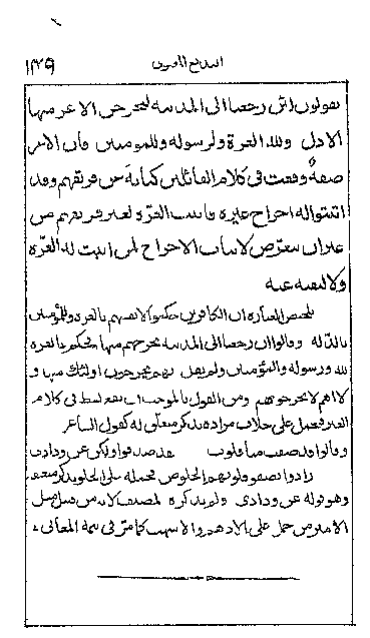 البديع المعنوى ١٣٩
يقولون لئن رجعنا الى المدينة ليخرجن الاعز منها
الاذل ولله العزة ولرسوله وللمومنين فان الاعز
صفةٌ وقعت فى كلام القائلين كناية عن فريقهم وقد
اثبتوا له اخراج غيره فاثبت العزّة لغير فريقهم من
غير ان يتعرّض لاثبات الاخراج لمن اثبت له العزّة
ولا لنفيه عنه
تلخيص العبارة ان الكافرين حكموا لانفسهم بالعزة وللمؤمنين
بالذلة وقالوا ان رجعنا الى المدينة نخرجهم منها فحكم بالعزة
لله ورسوله والمؤمنين ولم يقل انهم يخرجون اولئك منها و
لا انهم لا يخرجونهم ومن القول بالموجب ان يقع لفظ فى كلام
الغير فيحمل على خلاف مراده بذكر متعلق له كقول الشاعر
وقالوا قد صفت منا قلوب لقد صدقوا ولكن عن ودادى
ارادوا بصفو قلوبهم الخلوص فحمله على الخلو بذكر متعلقه
وهو قوله عن ودادى ولم يذكره المصنف لانه من قبيل
الامير من حمل على الادهم والاشهب كما مرّ فى تتمة المعانى